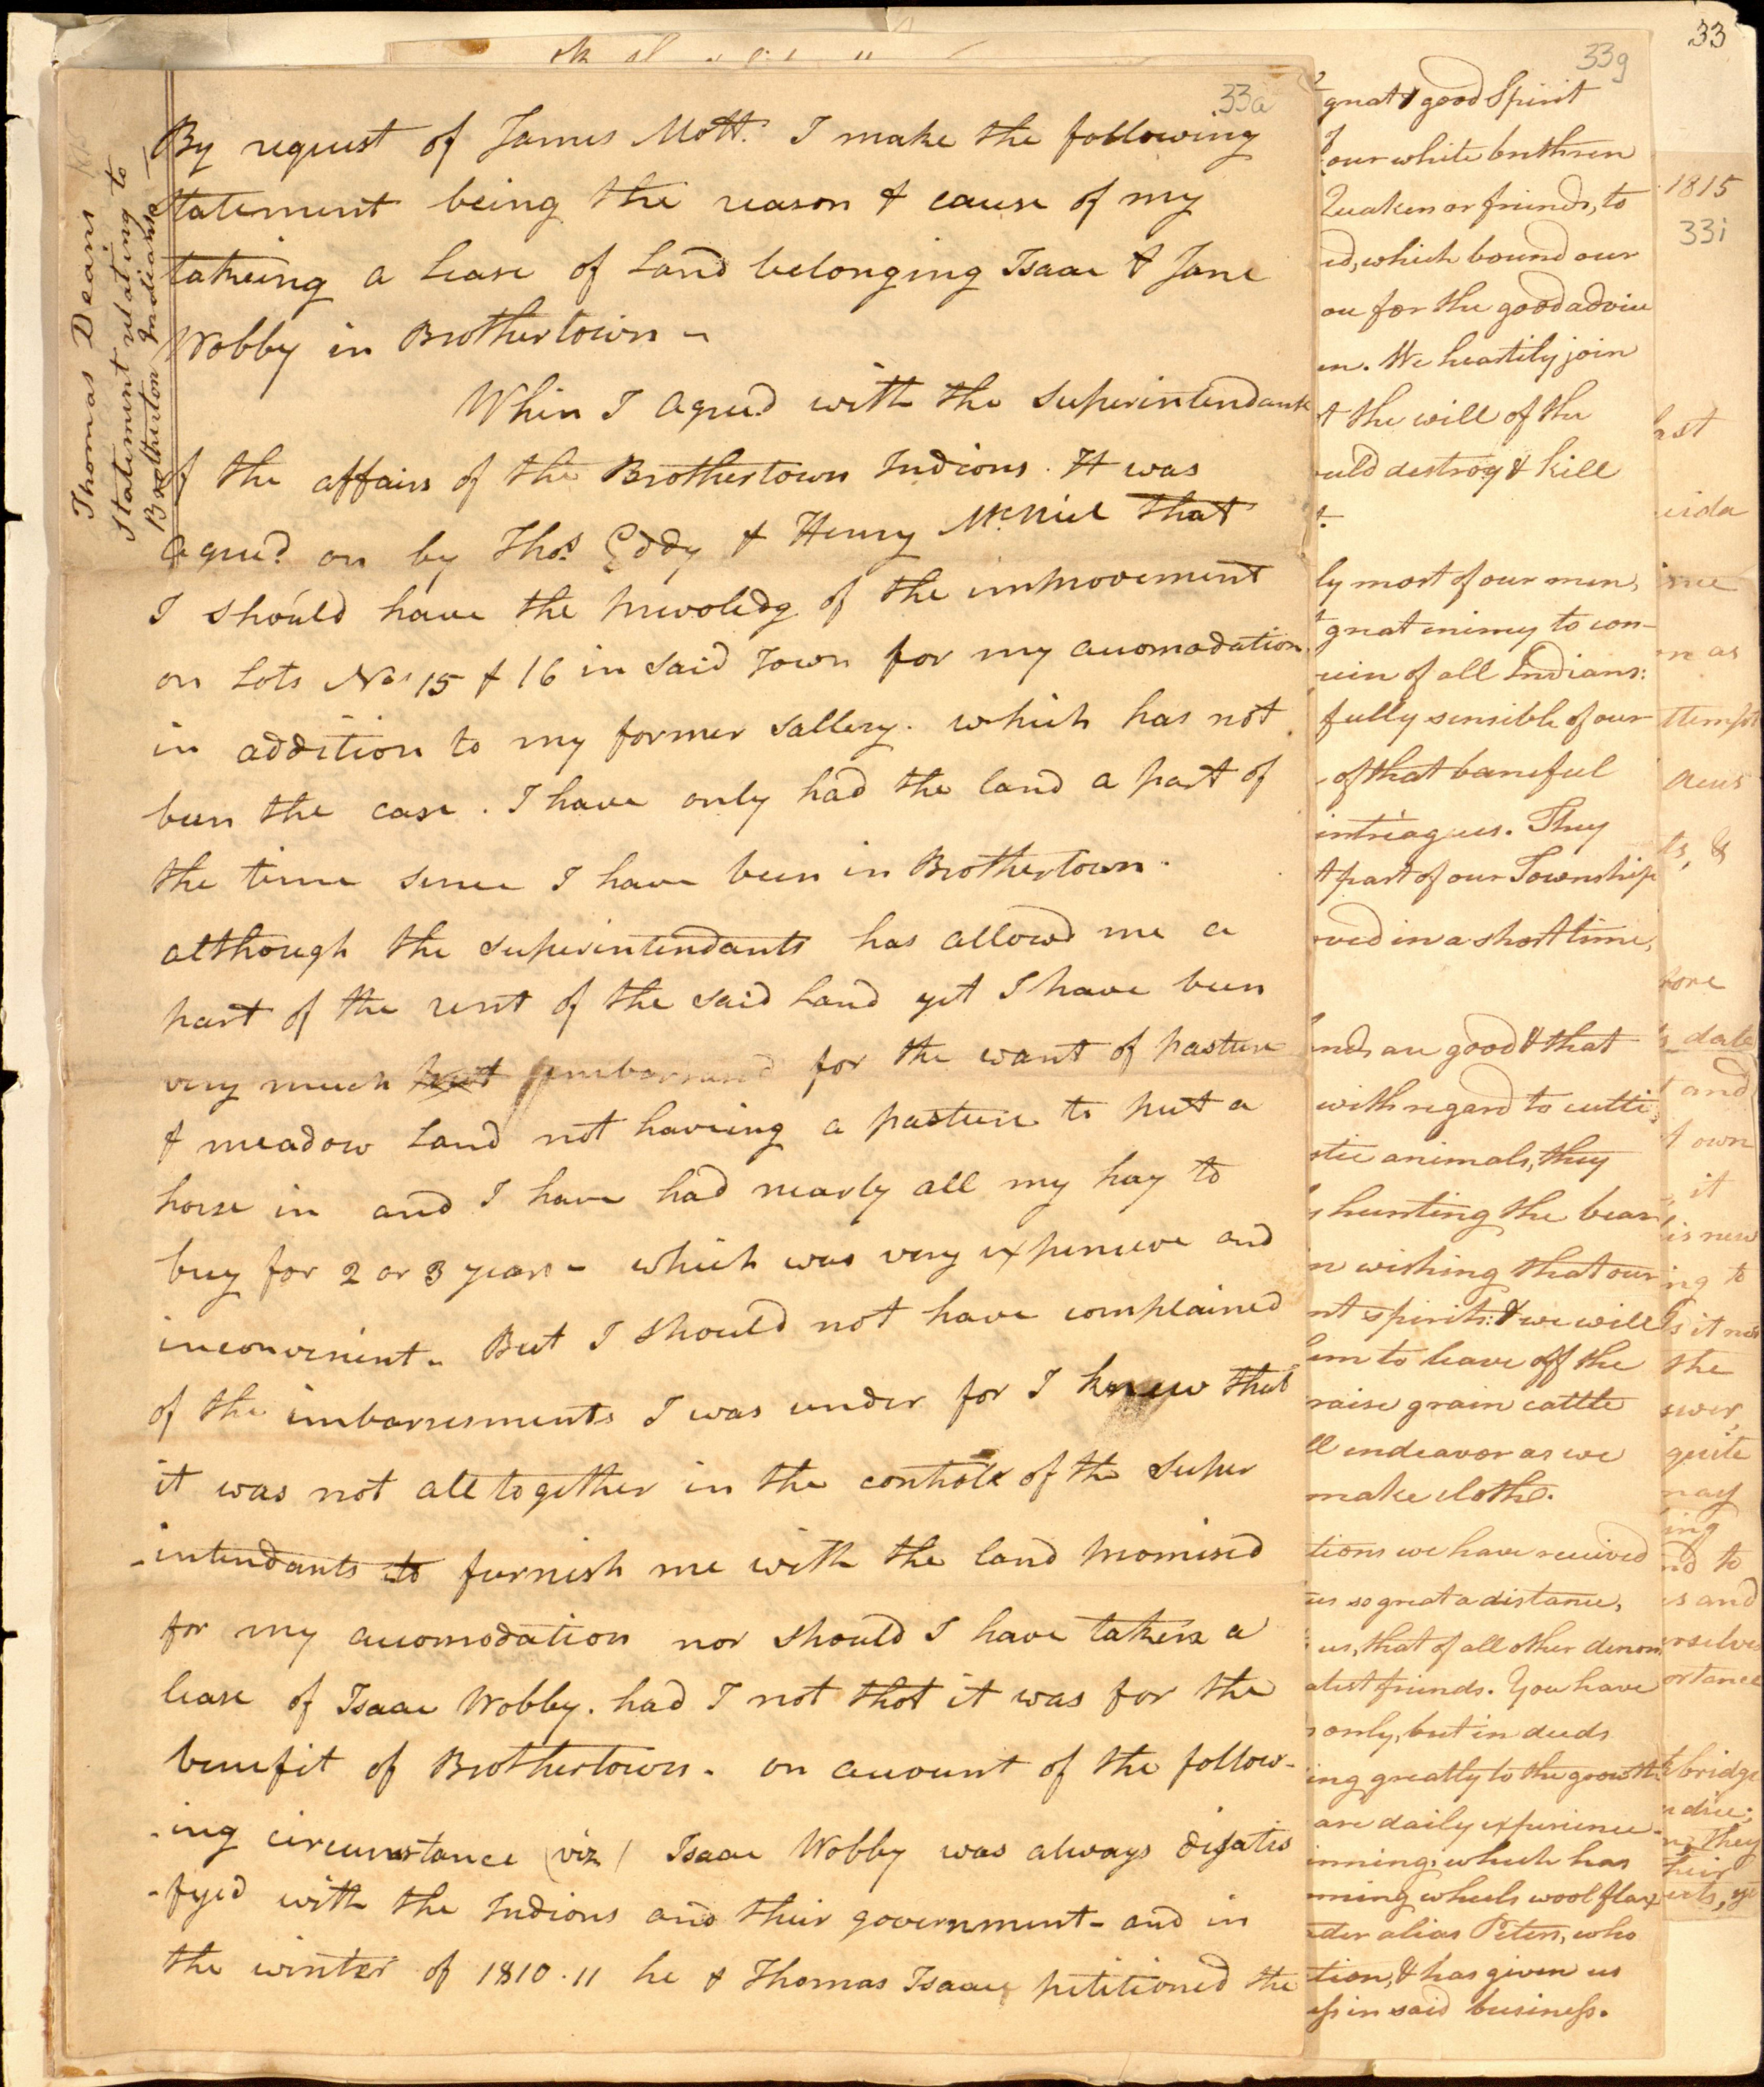 33
33g
33a
Thomas Deans
Statement relating to
Brotherton Indians
By request of James Mott. I make the following
statement being the reason & cause of my
takeing a lease of Land belonging Isaac & Jane
Wobby in Brothertown -
When I agreed with the Superintendants
of the affairs of the Brothertown Indions. It was
agreed on by Thos Eddy & Henry McNiel that
I should have the privoledg of the improvement
on Lots Nos 15 & 16 in said Town for my acomodation
in addition to my former Sallery. which has not
been the case. I have only had the land a part of
the time sence I have been in Brothertown.
although the superintendants has allowd me a
part of the rent of the said Land yet I have been
very much embarrased for the want of pasture
& meadow Land not haveing a pasture to put a
horse in and I have had nearly all my hay to
buy for 2 or 3 years - which was very expencive and
inconvenient - But I should not have complained
of the imbarresments I was under for I knew that
it was not all together in the controle of the Super
-intendants to furnish me with the land promised
for my acomodation nor should I have taken a
lease of Isaac Wobby. had I not thot it was for the
benefit of Brothertown - on account of the follow-
-ing circumstance (viz) Isaac Wobby was always disatis
-fyed with the Indions and their government - and in
the winter of 1810.11 he & Thomas Isaac petitioned the
great & good Spirit
our white brethren
Quakers or friends, to
ed, which bound our
ou for the good advice
en. We heartily join
t the will of the
ould destroy & kill
t.
ly most of our men,
great enimy to con-
ruin of all Indians:
fully sensible of our
of that baneful
intreagues. They
t part of our Township
oved in a short time,
nds are good & that
with regard to cutti
stic animals, they
y hunting the bear
n wishing that our
nt spirits: & we will
hem to leave off the
raise grain cattle
ll endeavor as we
make cloth.
tions we have received
us so great a distance,
us, that of all other denom
atest friends. You have
s only, but in deeds
ing greatly to the growth
are daily experience
inning, which has
nning wheels wool flax
der alias Peters, who
tion, & has given us
ess in said business.
1815
33i
ast
eida
me
on as
ttempt
ts, &
fore
date
and
t own
it
is new
ing to
Is it not
the
swer
quite
may
ing
nd to
s and
rselve
ortance
bridge
they
their